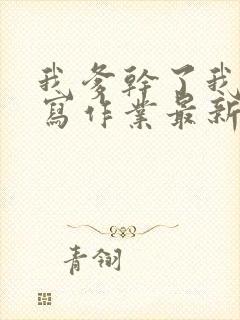 我爹幹了我
寫作業最新
青翎